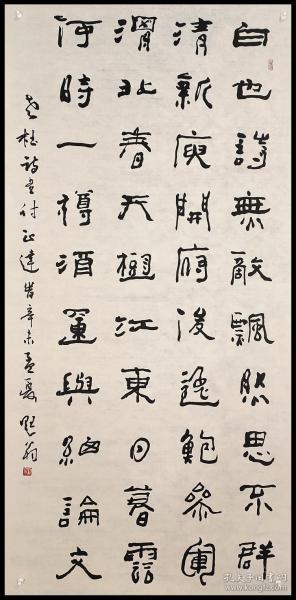 白也詩無敵飄然思不群
清新庾開府俊逸鮑參軍
渭北春天樹江東日暮雲
何時一樽酒重與細論文
老杜詩書付正達 辛未孟夏
孔夫子旧书网